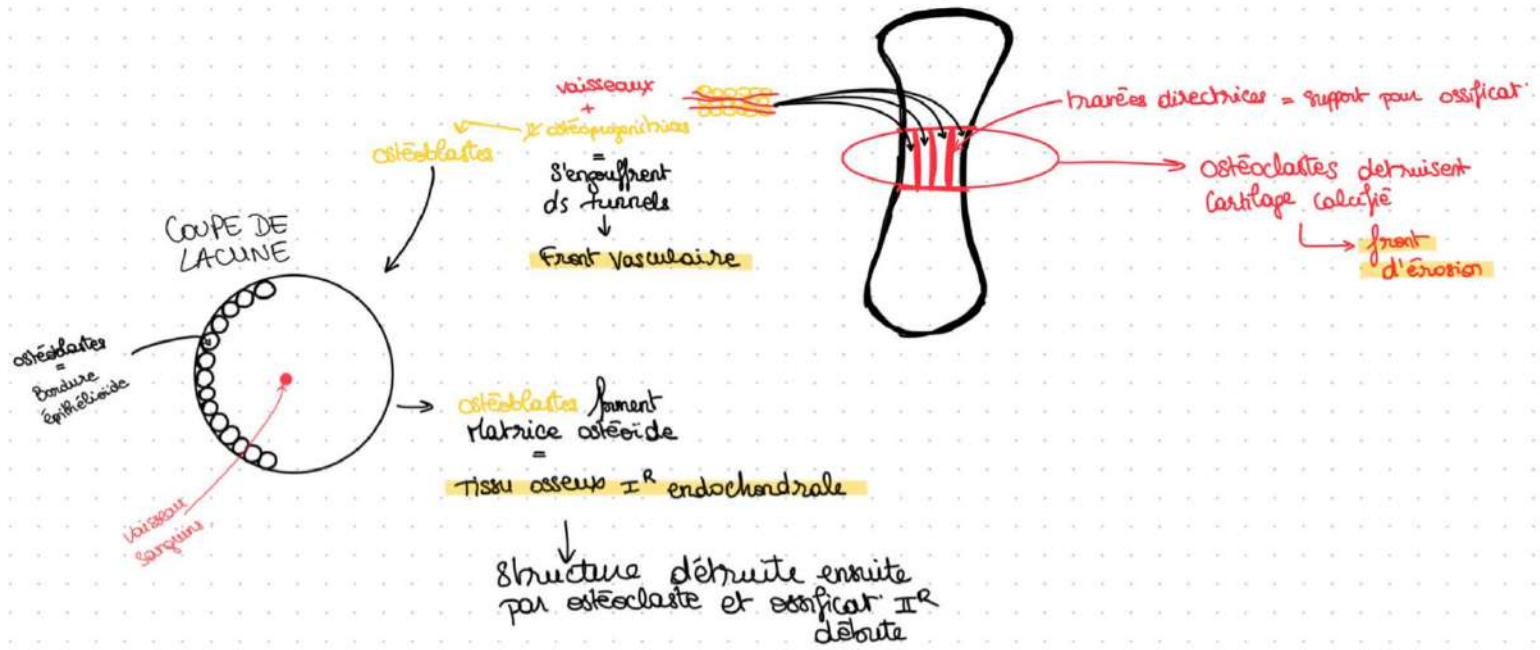 vaisseaux
+
¢ ostéoprogénitrices
=
s'engouffrent
ds tunnels
Front vasculaire
ostéoblastes
travées directrices = support pour ossificat°
ostéoclastes detruisent
cartilage calcifié
front
d'érosion
COUPE DE
LACUNE
ostéoblastes
=
Bordure
épithélioïde
Vaisseau
sanguins
ostéoblastes forment
Matrice ostéoïde
=
Tissu osseux I^R endochondrale
Structure détruite ensuite
par ostéoclaste et ossificat° II^R
débute